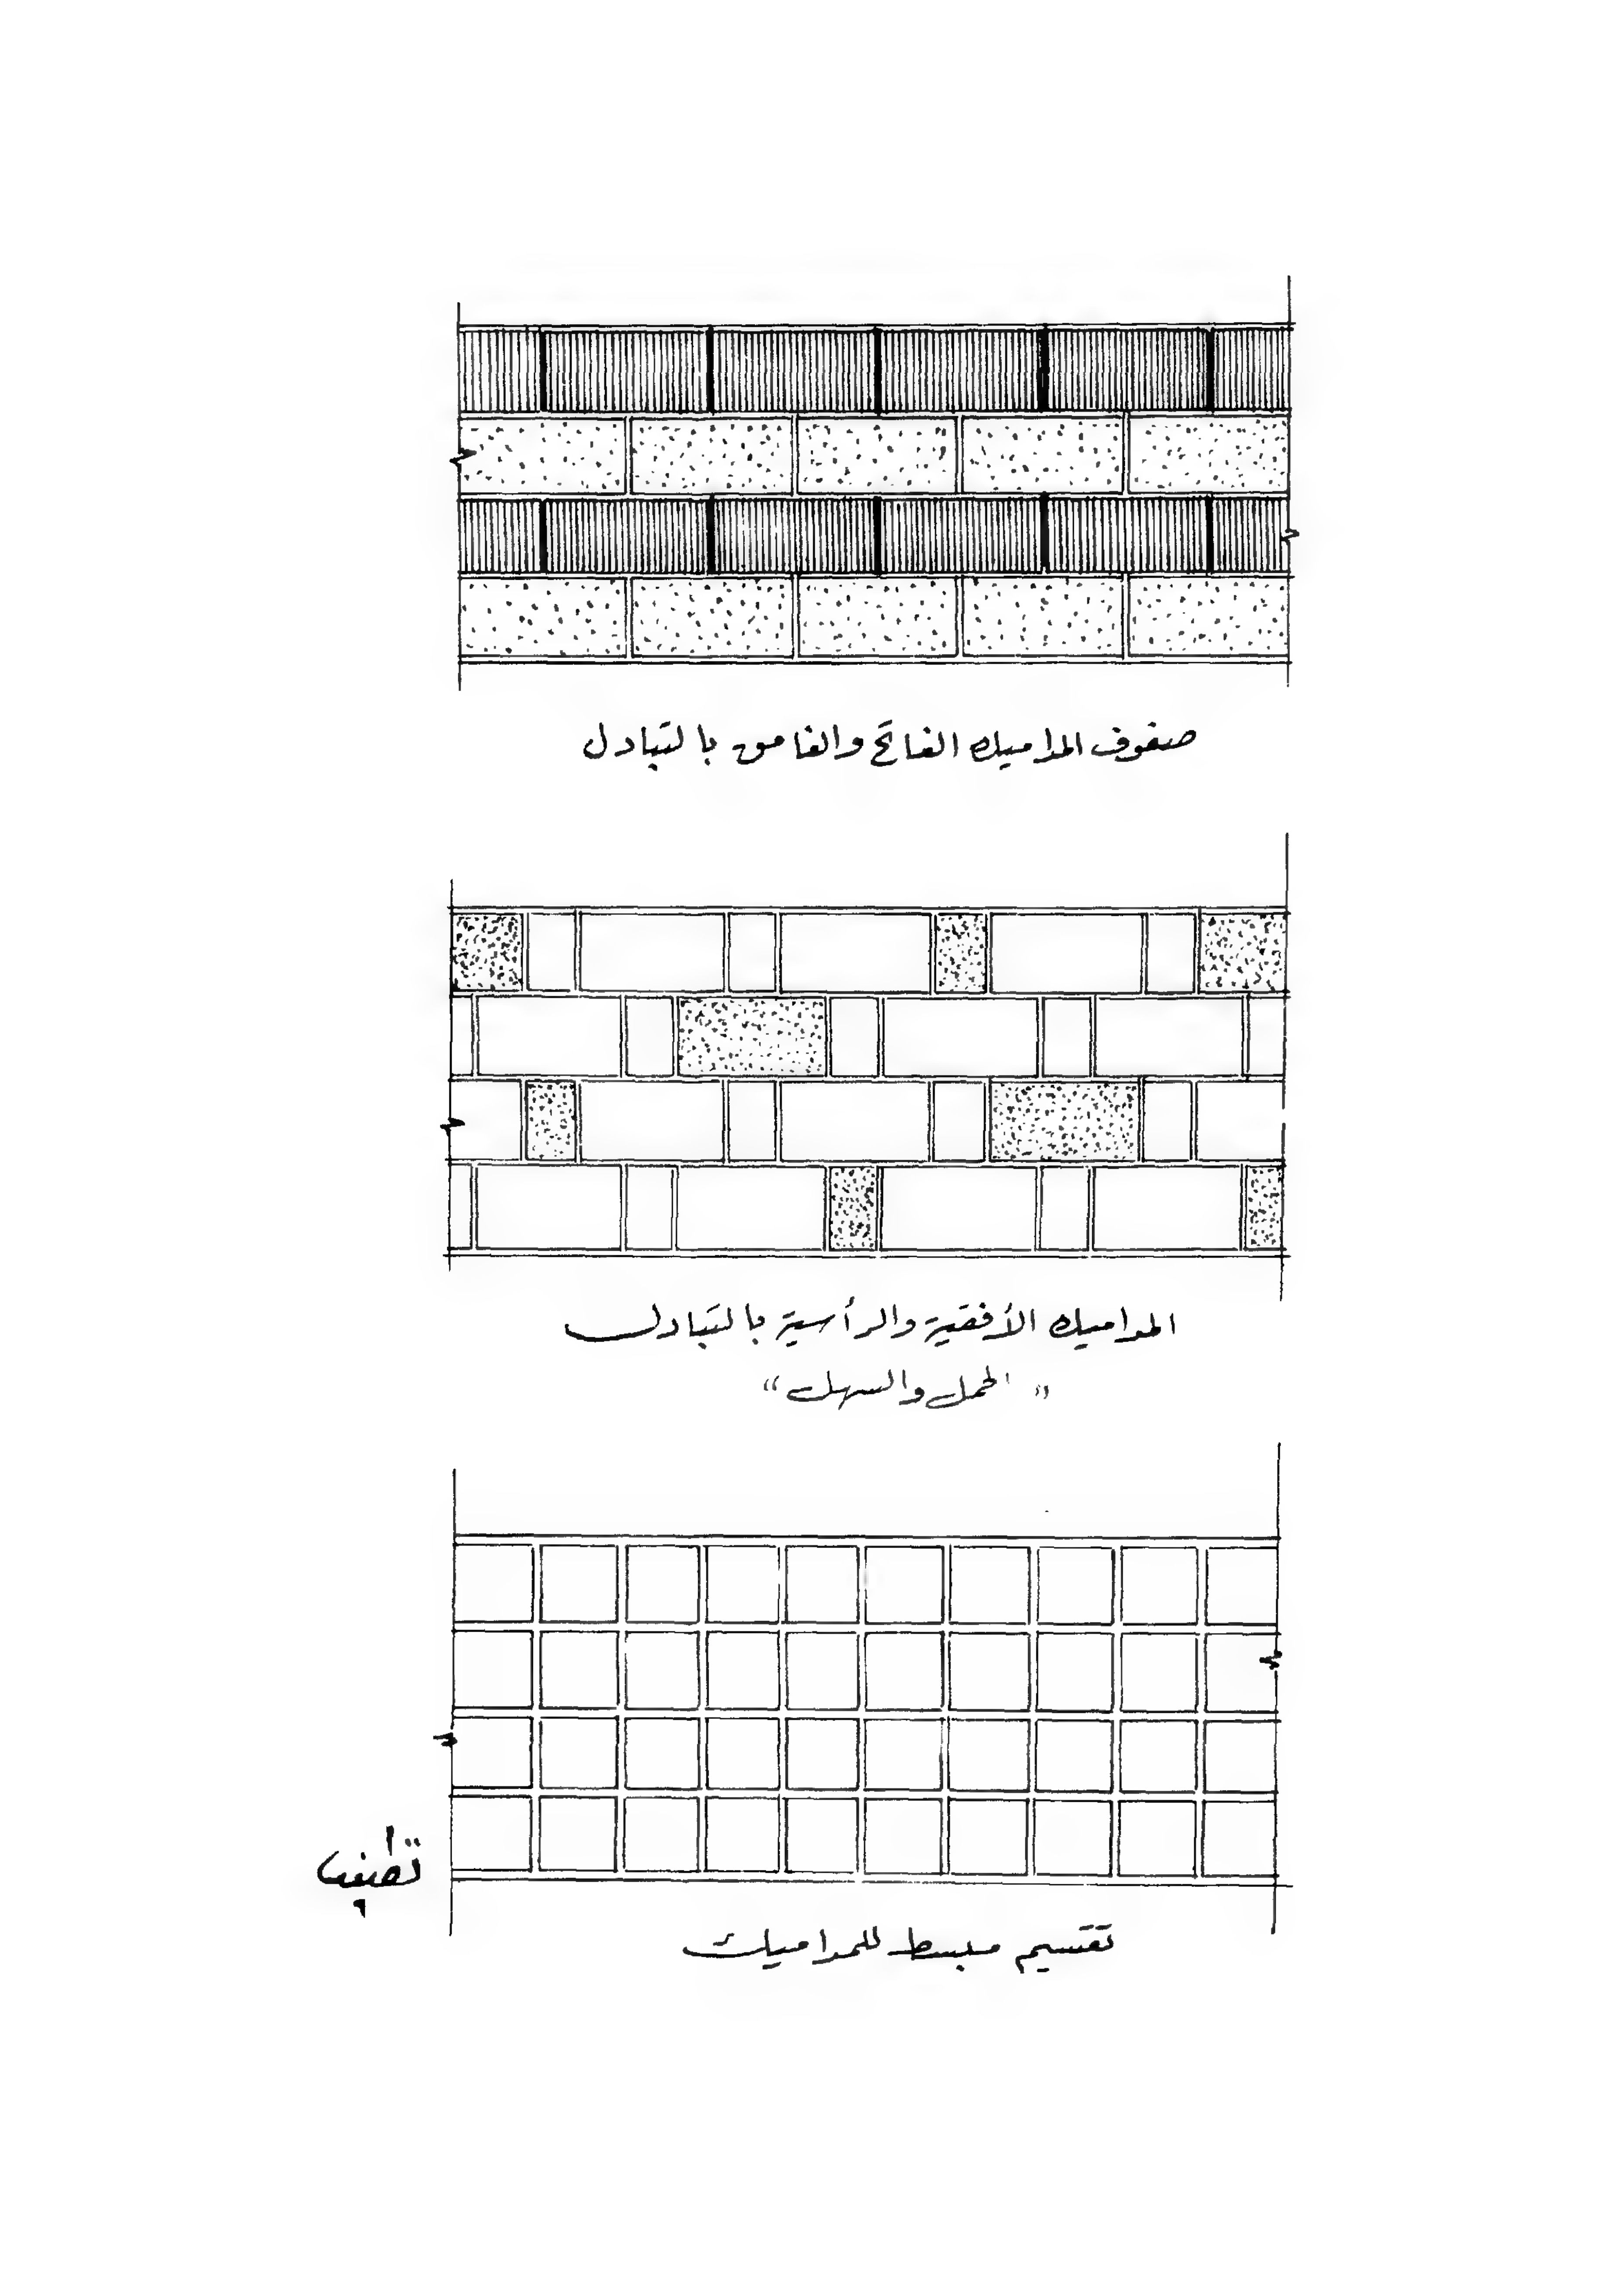 صفوف المداميك الفاتح والغامق بالتبادل
المداميك الأفقية والرأسية بالتبادل
"الحمل والسهل"
تقسيم مبسط للمداميك